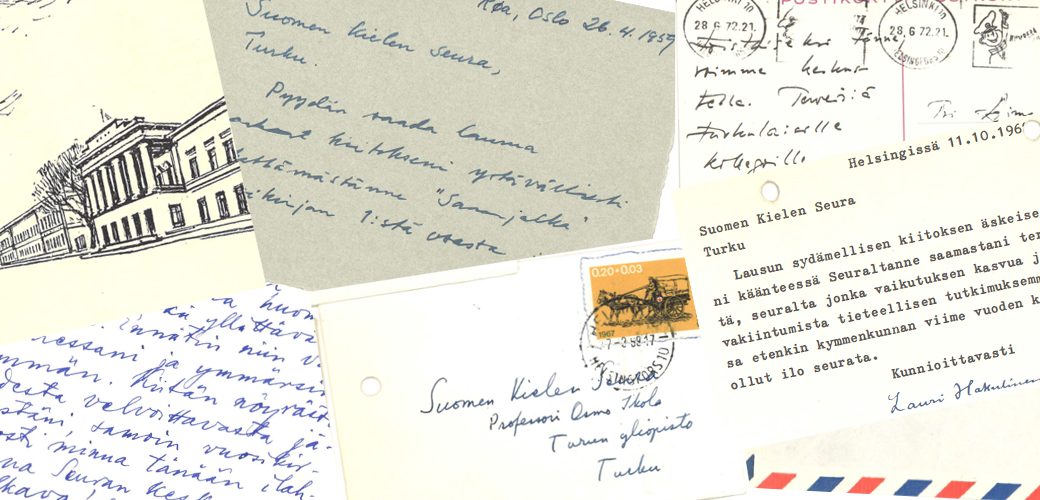 Røa, Oslo 26.4.1959
Suomen kielen seura,
Turku.
Pyydän saada lausua
kiitokseni ystävällisesti
"Sananjalka"
1:stä osasta
HELSINKI 10
28.6.72.21
HELSINGFORS 10
HELSINKI 10
28.6.72.21
HELSINGFORS 10
POSTIKORTTI
voimme keskus-
tella. Terveisiä
turkulaisille
kollegoille
Helsingissä 11.10.196
Suomen Kielen Seura
Turku
Lausun sydämellisen kiitoksen äskeise
ni käänteessä Seuraltanne saamastani ter
tä, seuralta jonka vaikutuksen kasvua j
vakiintumista tieteellisen tutkimuksemm
sa etenkin kymmenkunnan viime vuoden k
ollut ilo seurata.
Kunnioittavasti
Lauri Hakulinen
0.20+0.03
1967
HELSINGFORS 10
Suomen Kielen Seura
Professori Osmo Ikola
Turun yliopisto
Turku
yllättävä
Ennätin niin v
ressani ja ymmärsi
mmän. Kiitän nöyräst
desta velvoittavasta jä-
stäni, samoin vuosikir-
osti minua tänään ilah-
na Seuran kesk